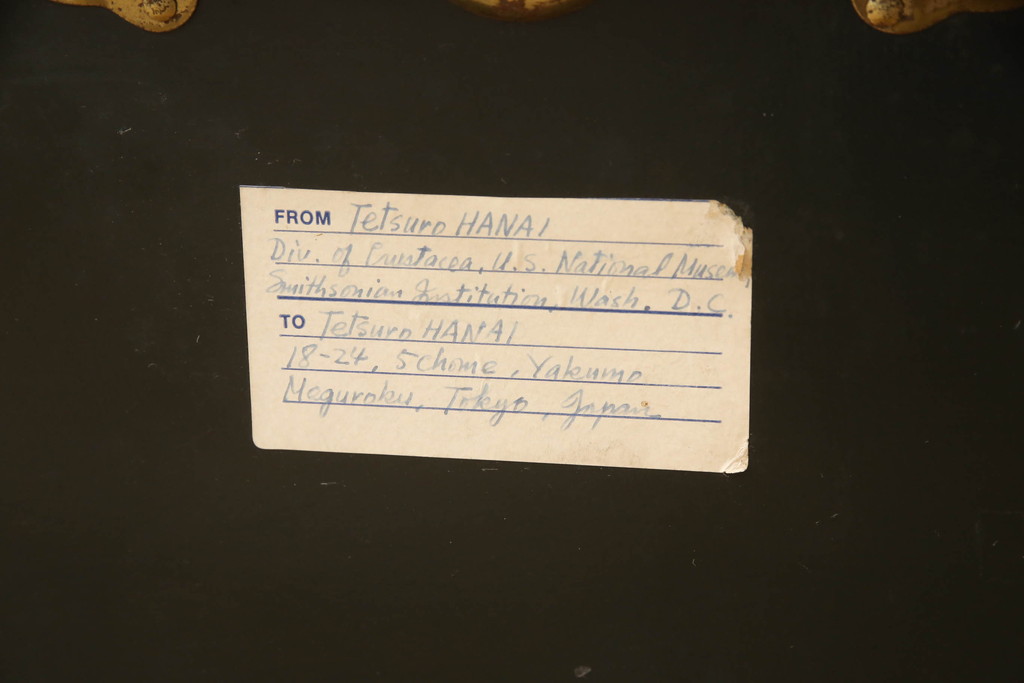 FROM Tetsuro HANAI
Div. of Crustacea, U.S. National Museum,
Smithsonian Institution, Wash. D.C.
TO Tetsuro HANAI
18-24, 5chome, Yakumo
Meguroku, Tokyo, Japan